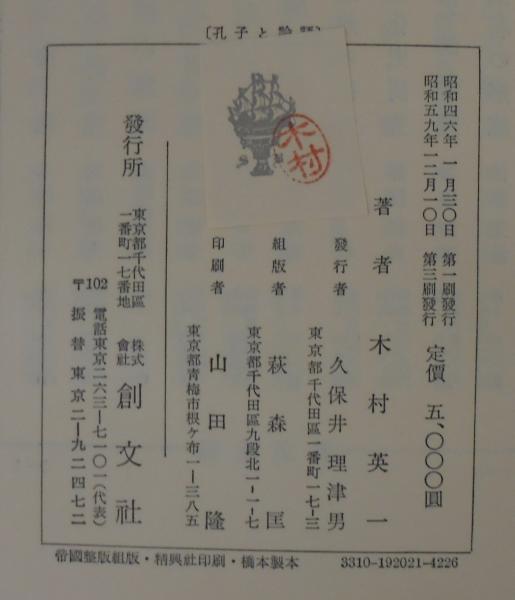 〔孔子と論語〕
昭和四六年一月三〇日 第一刷發行
昭和五九年一二月一〇日 第三刷發行
定價 五、〇〇〇圓
著者 木村英一
發行者 久保井理津男
東京都千代田區一番町一七-三
組版者 萩森匡
東京都千代田區九段北一-一-七
印刷者 山田隆
東京都靑梅市根ケ布一-三八五
發行所
東京都千代田區
一番町一七番地
株式會社 創文社
〒102
電話東京二六三-七一〇一(代表)
振替東京二-九二四七二
木村
帝國整版組版・精興社印刷・橋本製本 3310-192021-4226